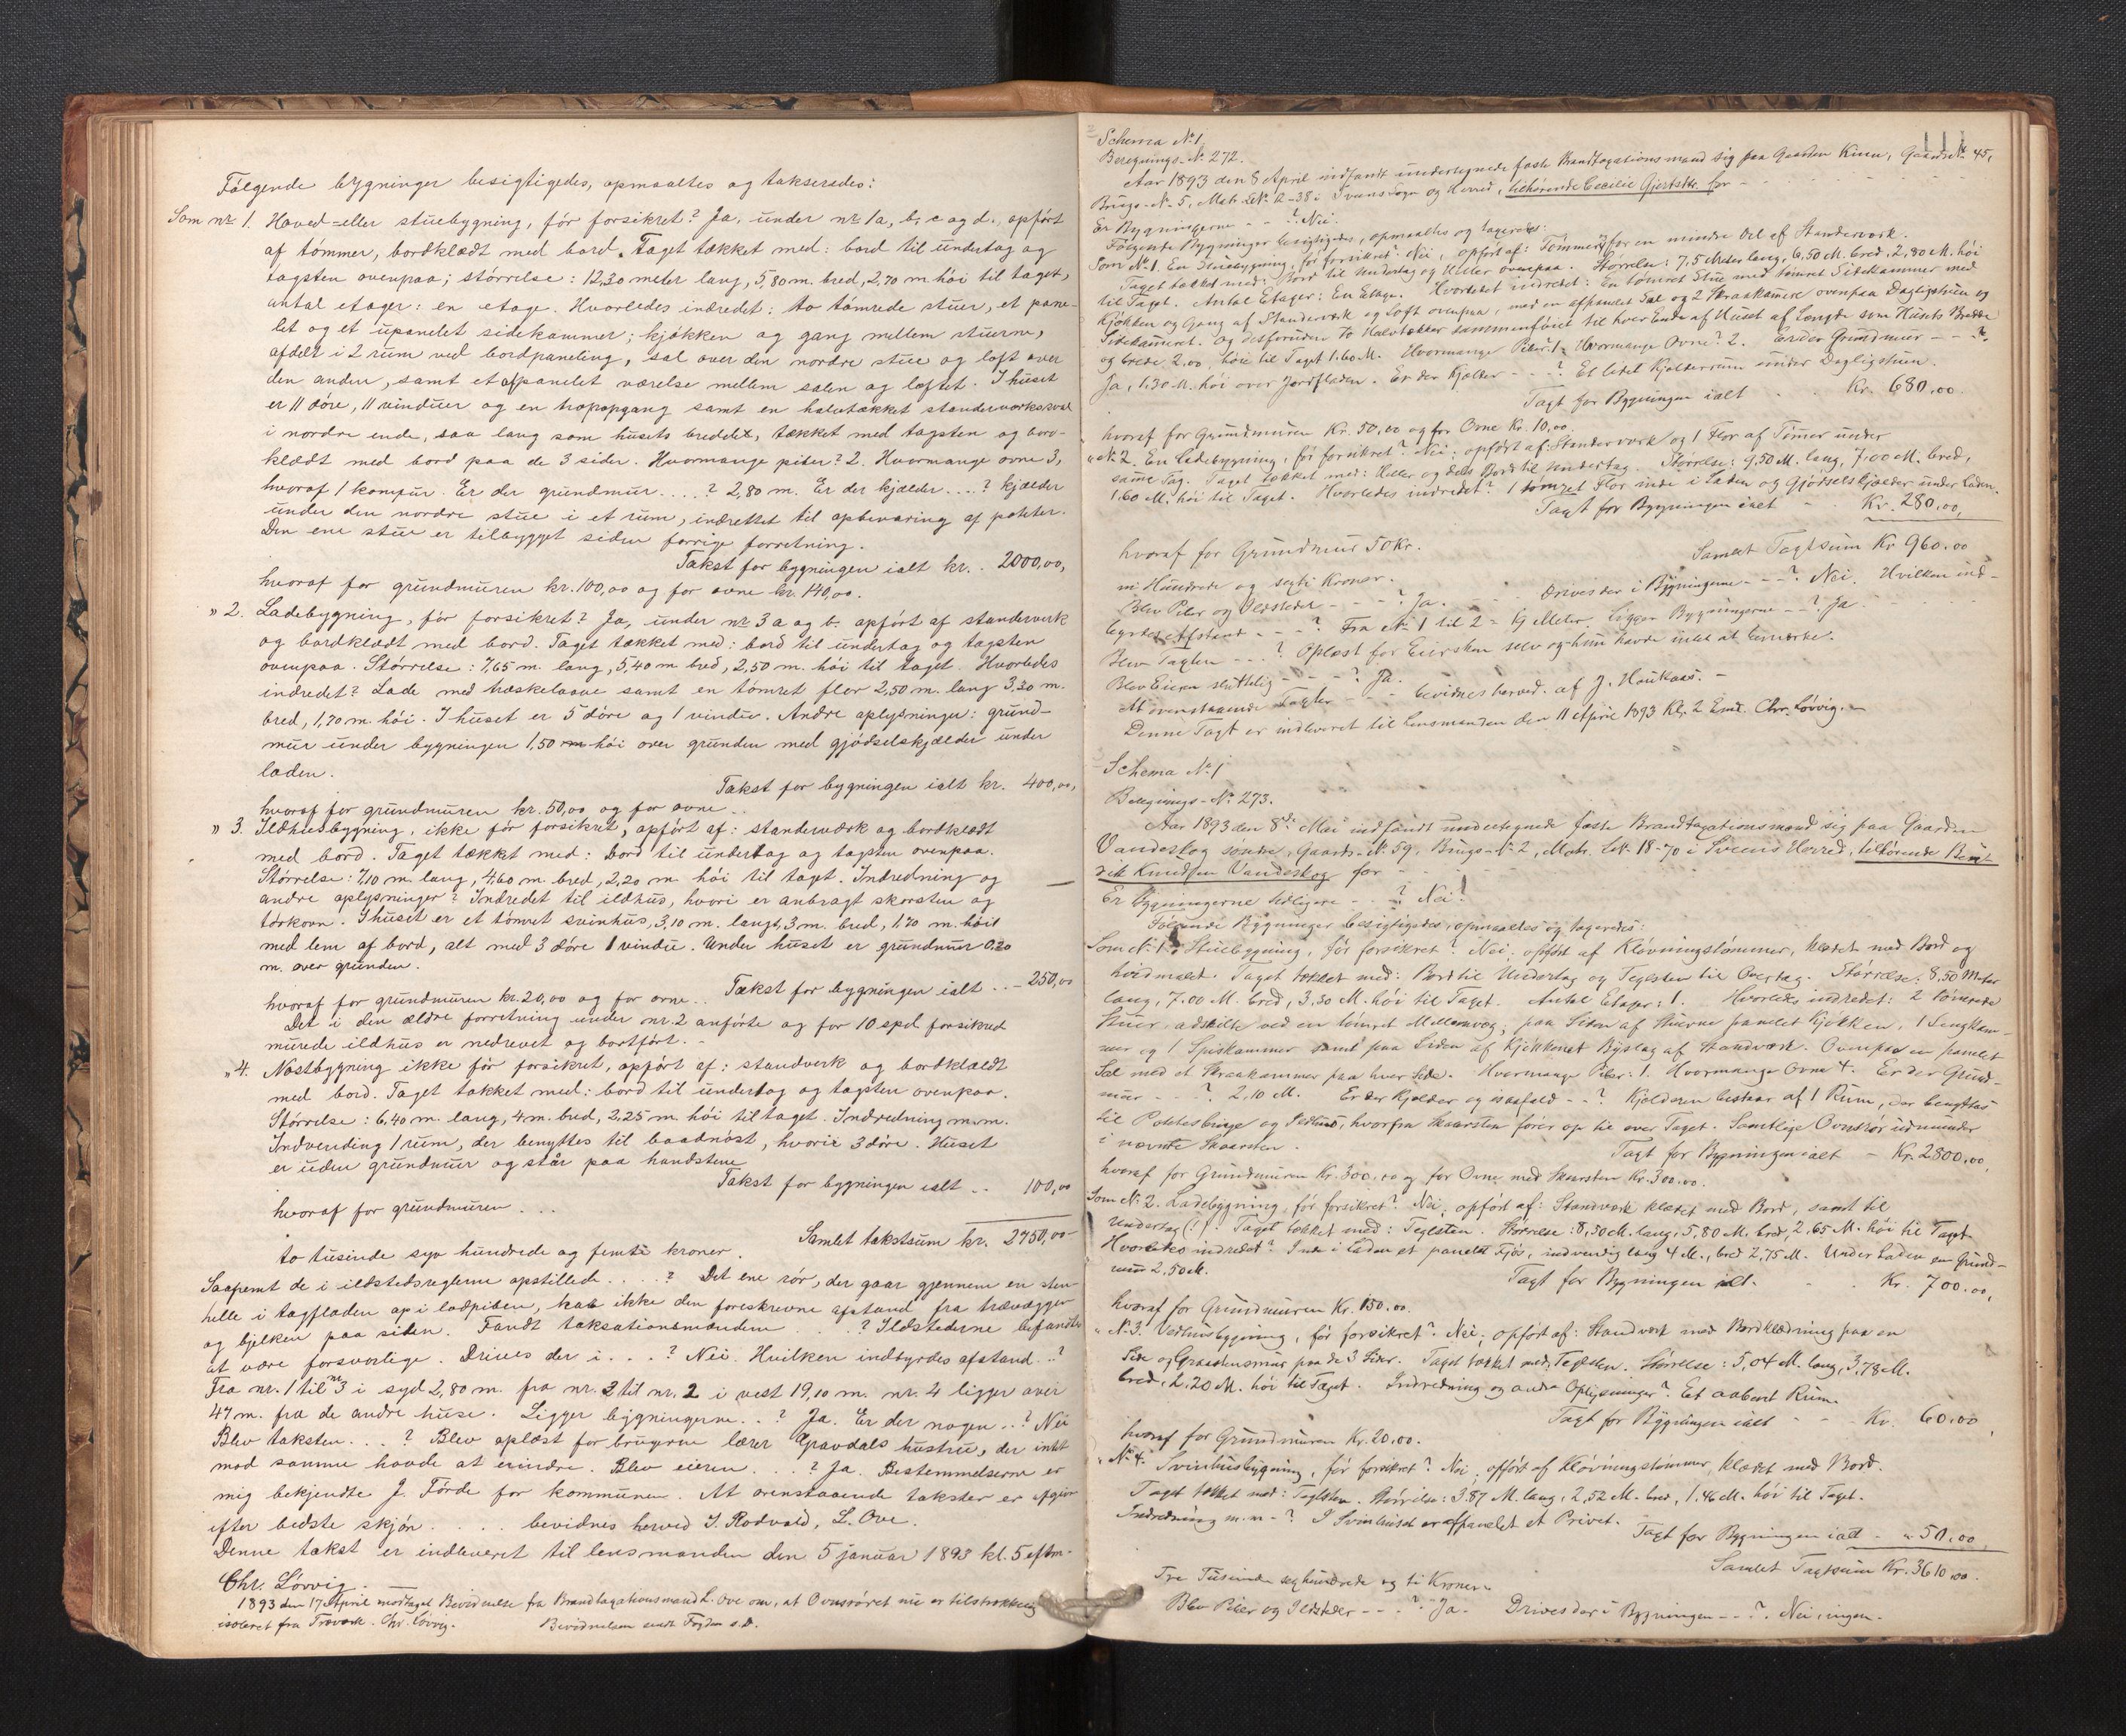 Følgende bygninger besigtigedes, opmaaltes og takseredes:
Som nr 1. Hoved- eller stuebygning, før forsikret? Ja, under nr 1a, b, c og d., opført
af tømmer, bordklædt med bord. Taget tækket med: bord til undertag og
tagsten ovenpaa; størrelse: 12,30 meter lang, 5,80 m. bred, 2,70 m høi til taget,
antal etager: en etage. Hvorledes indredet: to tømrede stuer, et pane-
let og et upanelet sidekammer; kjøkken og gang mellem stuerne,
afdelt i 2 rum ved bordpaneling, sal over den nordre stue og loft over
den anden, samt et afpanelet værelse mellem salen og loftet. I huset
er 11 døre, 11 vinduer og en trapopgang samt en halvtækket standerværkssval
i nordre ende, saa lang som husets bredde, tækket med tagsten og bord-
klædt med bord paa de 3 sider. Hvormange piber? 2. Hvormange ovne 3,
hvoraf 1 komfur. Er der grundmur . . . . ? 2,80 m. Er der kjælder . . . . ? kjælder
under den nordre stue i et rum, indrettet til opbevaring af poteter.
Den ene stue er tilbygget siden forrige forretning.
Takst for bygningen ialt kr. . 2000,00,
hvoraf for grundmuren kr. 100,00 og for ovne kr. 140,00.
" 2. Ladebygning, før forsikret? Ja, under nr 3 a og b. opført af standerverk
og bordklædt med bord. Taget tækket med: bord til undertag og tagsten
ovenpaa. Størrelse: 7,65 m. lang, 5,40 m bred, 2,50 m. høi til taget. Hvorledes
indredet? Lade med træskelaave samt en tømret flor 2,50 m. lang 3,30 m.
bred, 1,70 m. høi. I huset er 5 døre og 1 vindue. Andre oplysninger: grund-
mur under bygningen 1,50 m høi over grunden med gjødselskjælder under
laden.
Takst for bygningen ialt kr. 400,00,
hvoraf for grundmuren kr. 50,00 og for ovne
" 3. Ildhusbygning, ikke før forsikret, opført af: standerværk og bordklædt
med bord. Taget tækket med: Bord til undertag og tagsten ovenpaa.
Størrelse: 7,10 m. lang, 4,60 m. bred, 2,20 m høi til taget. Indredning og
andre oplysninger? Indredet til ildhus, hvori er anbragt skorsten og
tørkovn. I huset er et tømret svinhus, 3,10 m. langt, 3 m. bred, 1,70 m. høit
med lem af bord, alt med 3 døre 1 vindue. Under huset er grundmur 0,20
m. over grunden.
Takst for bygningen ialt . . – 250,00
hvoraf for grundmuren kr. 20,00 og for ovne . .
Det i den ældre forretning under nr. 2 anførte og for 10 spd. forsikred
murede ildhus er nedrevet og bortført. -
" 4. Nøstbygning ikke før forsikret, opført af: standverk og bordklædt
med bord. Taget tækket med: bord til undertag og tagsten ovenpaa.
Størrelse: 6,40 m. lang, 4 m. bred, 2,25 m. høi til taget. Indredning m.m.
Indvending 1 rum, der benyttes til baadnøst, hvori 3 døre. Huset
er uden grundmur og står paa handstene
Takst for bygningen ialt . . 100,00
hvoraf for grundmuren . . .
Samlet takstsum kr. 2750,00
to tusinde syv hundrede og femti kroner.
Saafremt de i ildstedsreglerne opstillede . . . . ? Det ene rør, der gaar gjennem en sten-
helle i tagfladen op i ladpiben, hab ikke den foreskrevne afstand fra trævæggen
og bjelken paa siden. Fandt taksationsmændene . . . ? Ildstederne befandtes
at være forsvarlige. Drives der i . . . ? Nei. Hvilken indbyrdes afstand . . ?
Fra nr. 1 til nr 3 i syd 2,80 m. fra nr. 3 til nr. 2 i vest 19,10 m. nr. 4 ligger over
47 m. fra de andre huse. Ligger bygningerne . . ? Ja. Er der nogen . . ? Nei
Blev taksten . . . ? Blev oplæst for brugeren lærer Gravdals hustru, der intet
mod samme havde at erindre. Blev eieren . . . ? Ja. Bestemmelserne er
mig bekjendte J. Førde for kommunen. At ovenstaaende takster er afgivn
efter bedste skjøn . . . . bevidnes herved I. Rodvold, L. Ove.
Denne takst er indleveret til lensmanden den 5 januar 1893 kl. 5 eftm.
Chr. Løvvig.
1893 den 17 April modtaget Bevidnelse fra Brandtaxationsmand L. Ove om, at Ovnsrøret nu er tilstrækkelig
isoleret fra Træværk. Chr. Løvvig. Bevidnelsen sendt Fogden s.D.
Schema No 1
Beregnings-No 272.
Aar 1893 den 8 April indfandt undertegnede faste Brandtaxationsmand sig paa Gaarden Kinn, Gaards No 45,
Brugs-No 5, Matr. LNo 2-38 i Svans Sogn og Herred, tilhørende Cecilie Gjertsdtr. for -
Er Bygningerne - - ? Nei.
Følgende Bygninger besigtigedes, opmaaltes og taxeredes:
Som No 1. En Stuebygning, før forsikret? Nei, opført af: Tømmer, for en mindre Del af Standerværk.
Taget tækket med: Bord til Undertag og Heller ovenpaa. Størrelse: 7,5 Meter lang, 6,50 M. bred, 2,80 M. høi
til Taget. Antal Etager: En Etage. Hvorledes indredet: En tømret Stue med tømret Sidekammer med
Kjøkken og Gang af Standerværk og Loft ovenpaa, med en afpanelet Sal og 2 Skraakamre ovenpaa Dagligstuen og
Sidekamret. Og desforuden to Halvtækker sammenføiet til hver Ende af Huset af Længde som Husets Bredde
og brede 2.00, høie til Taget 1.60 M. Hvormange Piber? 1. Hvormange Ovne? 2. Er der Grundmur - - ?
Ja, 1.30 M. høi over Jordfladen. Er der Kjælder - - - ? Et lidet Kjælderrum under Dagligstuen.
Taxt for Bygningen ialt . . Kr. 680,00.
hvoraf for Grundmuren Kr. 50,00 og for Ovne Kr. 10,00.
" No 2. En Ladebygning, før forsikret? Nei, opført af: Standerværk og 1 Flor af Tømer under
samme Tag. Taget tækket med: Heller og dels Bord til Undertag. Størrelse: 9,50 M. lang, 7,00 M. bred,
1.60 M. høi til Taget. Hvorledes indredet? 1 tømret Flor inde i Laden og Gjødselskjælder under Laden.
Taxt for Bygningen ialt - . Kr. 280.00,
hvoraf for Grundmur 50 Kr.
Samlet Taxtsum Kr 960.00
ni Hundrede og sexti Kroner.
Blev Piber og Ildsteder - - - - ? Ja. - - Drives der i Bygningerne - - - ? Nei. Hvilken ind-
byrdes Afstand - - - ? Fra No 1 til 2 = 19 Meter. Ligger Bygningerne - - ? Ja.
Blev Taxten - - - ? Oplæst for Eiersken selv og hun havde intet at bemærke.
Blev Eieren sluttelig - - - - ? Ja.
At ovenstaaende Taxter - - - bevidnes herved. af J. Haukaas. -
Denne Taxt er indleveret til Lensmanden den 11 April 1893 Kl. 2 Emd. Chr. Løvvig. -
Schema No 1
Beregnings-No 273.
Aar 1893 den 8de Mai indfandt undertegnede faste Brandtaxationsmænd sig paa Gaarden
Vandeskog søndre, Gaards-No 59, Brugs-No 2, Matr. LNo 18-70 i Sveens Herred, tilhørende Bent
dik Knudsen Vandeskog for -
Er Bygningerne tidligere - - ? Nei!
Følgende Bygninger besigtigedes, opmaaltes og taxeredes:
Som No 1. Stuebygning, før forsikret? Nei, opført af Kløvningstømmer, klædet med Bord og
hvidmalet. Taget tækket med: Bord til Undertag og Teglsten til Overtag. Størrelse: 8,50 Meter
lang, 7.00 M. bred, 3.30 M. høi til Taget. Antal Etager: 1. Hvorledes indredet: 2 tømrede
Stuer, adskilte ved en tømret Mellemvæg, paa Siden af Stuerne panelet Kjøkken, 1 Sengkam-
mer og 1 Spiskammer samt paa Siden af Kjøkkenet Bislag af Standværk. Ovenpaa en panelet
Sal med et Skraakammer paa hver Side. Hvormange Piber: 1. Hvormange Ovne 4. Er der Grund-
mur - - - ? 2,10 M. Er der Kjælder og isaafald - - ? Kjælderen bestaar af 1 Rum, der benyttes
til Potetesbinge og Ildhus, hvorfra Skaarsten fører op til over Taget. Samtlige Ovnsrør udmunder
i nævnte Skaarsten.
Taxt for Bygningen ialt - Kr. 2800,00,
hvoraf for Grundmuren Kr. 300,00 og for Ovne med Skorsten Kr. 300.00.
Som No 2. Ladebygning, før forsikret? Nei, opført af: Standværk klædet med Bord, samt til
Undertag (!). Taget tækket med: Teglsten. Størrelse: 8,50 M. lang, 5,80 M. bred, 2,65 M. høi til Taget.
Hvorledes indredet? Inde i Laden et panelet Fjøs, indvendig lang 4 M., bred 2,75 M. Under Laden en Grund-
mur 2,50 M.
Taxt for Bygningen ialt. - . Kr. 700.00,
hvoraf for Grundmuren Kr. 150.00.
" No 3. Vedhusbygning, før forsikret? Nei, opført af: Standværk med Bordklædning paa en
Side og Graastensmur paa de 3 Sider. Taget tækket med Teglsten. Størrelse: 5,04 M. lang, 3,78 M.
bred, 2,20 M. høi til Taget. Indredning og andre Oplysninger? Et aabent Rum.
Taxt for Bygningen ialt - - Kr. 60,00,
hvoraf for Grundmuren Kr. 20.00.
" No 4. Svinhusbygning, før forsikret? Nei, opført af Kløvningstømmer, klædet med Bord.
Taget tækket med: Teglsten. Størrelse: 3.87 M. lang, 2,52 M. bred, 1.46 M. høi til Taget.
Indredning m.m. - ? I Svinhuset er afpanelet et Privet.
Taxt for Bygningen ialt - " 50,00
Samlet Taxtsum Kr. 3610,00.
Tre Tusinde sexhundrede og ti Kroner.
Blev Piber og Ildsteder - - - ? Ja. Drives der i Bygningen - - ? Nei, ingen.